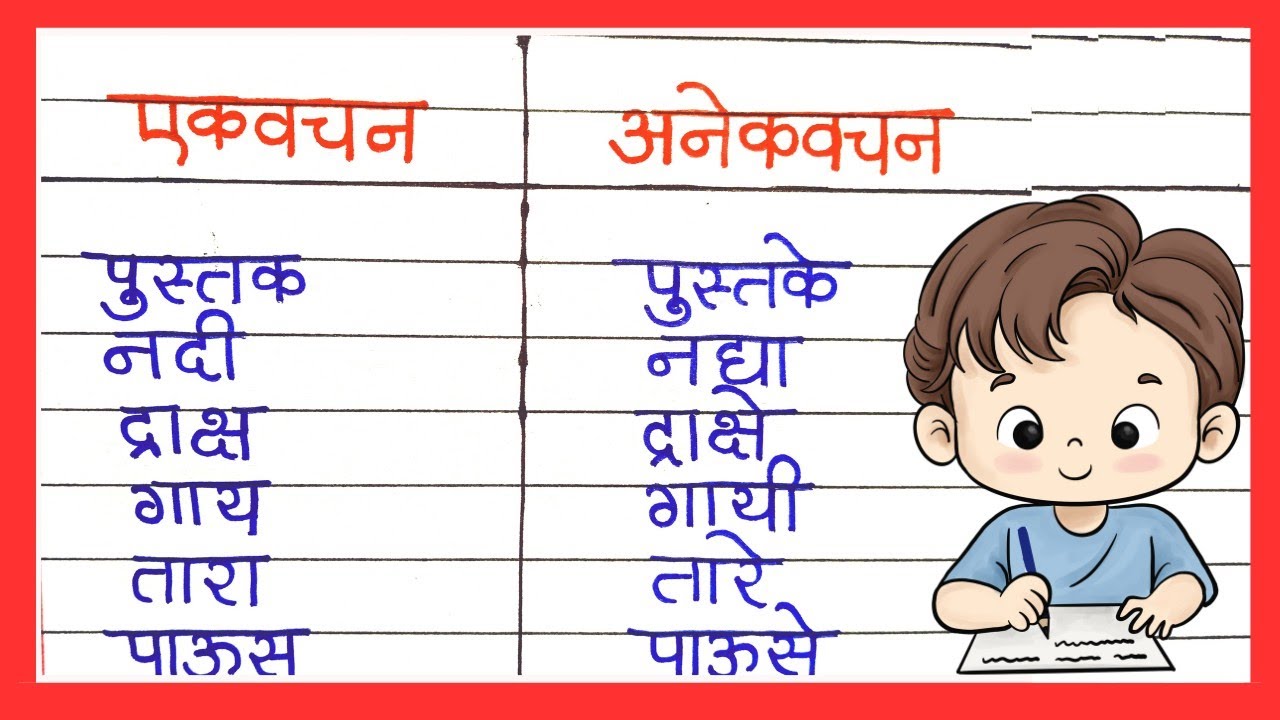 एकवचन अनेकवचन
पुस्तक पुस्तके
नदी नद्या
द्राक्ष द्राक्षे
गाय गायी
तारा तारे
पाऊस पाऊसे